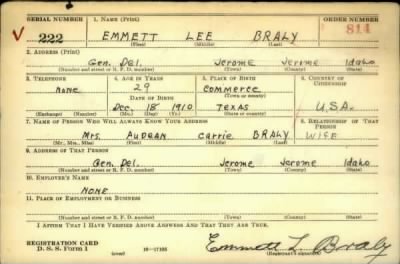 SERIAL NUMBER 1. NAME (Print) ORDER NUMBER
V 222 EMMETT LEE BRALY 814
(First) (Middle) (Last)
2. ADDRESS (Print)
Gen. Del. Jerome Jerome Idaho
(Number and street or R. F. D. number) (Town) (County) (State)
3. TELEPHONE 4. AGE IN YEARS 5. PLACE OF BIRTH 6. COUNTRY OF CITIZENSHIP
None 29 Commerce
DATE OF BIRTH (Town or county)
Dec. 18 1910 Texas U.S.A.
(Exchange) (No.) (Mo.) (Day) (Yr.) (State or country)
7. NAME OF PERSON WHO WILL ALWAYS KNOW YOUR ADDRESS 8. RELATIONSHIP OF THAT PERSON
Mrs. Audean Carrie BRALY WIFE
(Mr., Mrs., Miss) (First) (Middle) (Last)
9. ADDRESS OF THAT PERSON
Gen. Del. Jerome Jerome Idaho
(Number and street or R. F. D. number) (Town) (County) (State)
10. EMPLOYER'S NAME
NONE
11. PLACE OF EMPLOYMENT OR BUSINESS
(Number and street or R. F. D. number) (Town) (County) (State)
I AFFIRM THAT I HAVE VERIFIED ABOVE ANSWERS AND THAT THEY ARE TRUE.
REGISTRATION CARD
D. S. S. Form 1 (over) 16—17105 Emmett L Braly
(Registrant's signature)